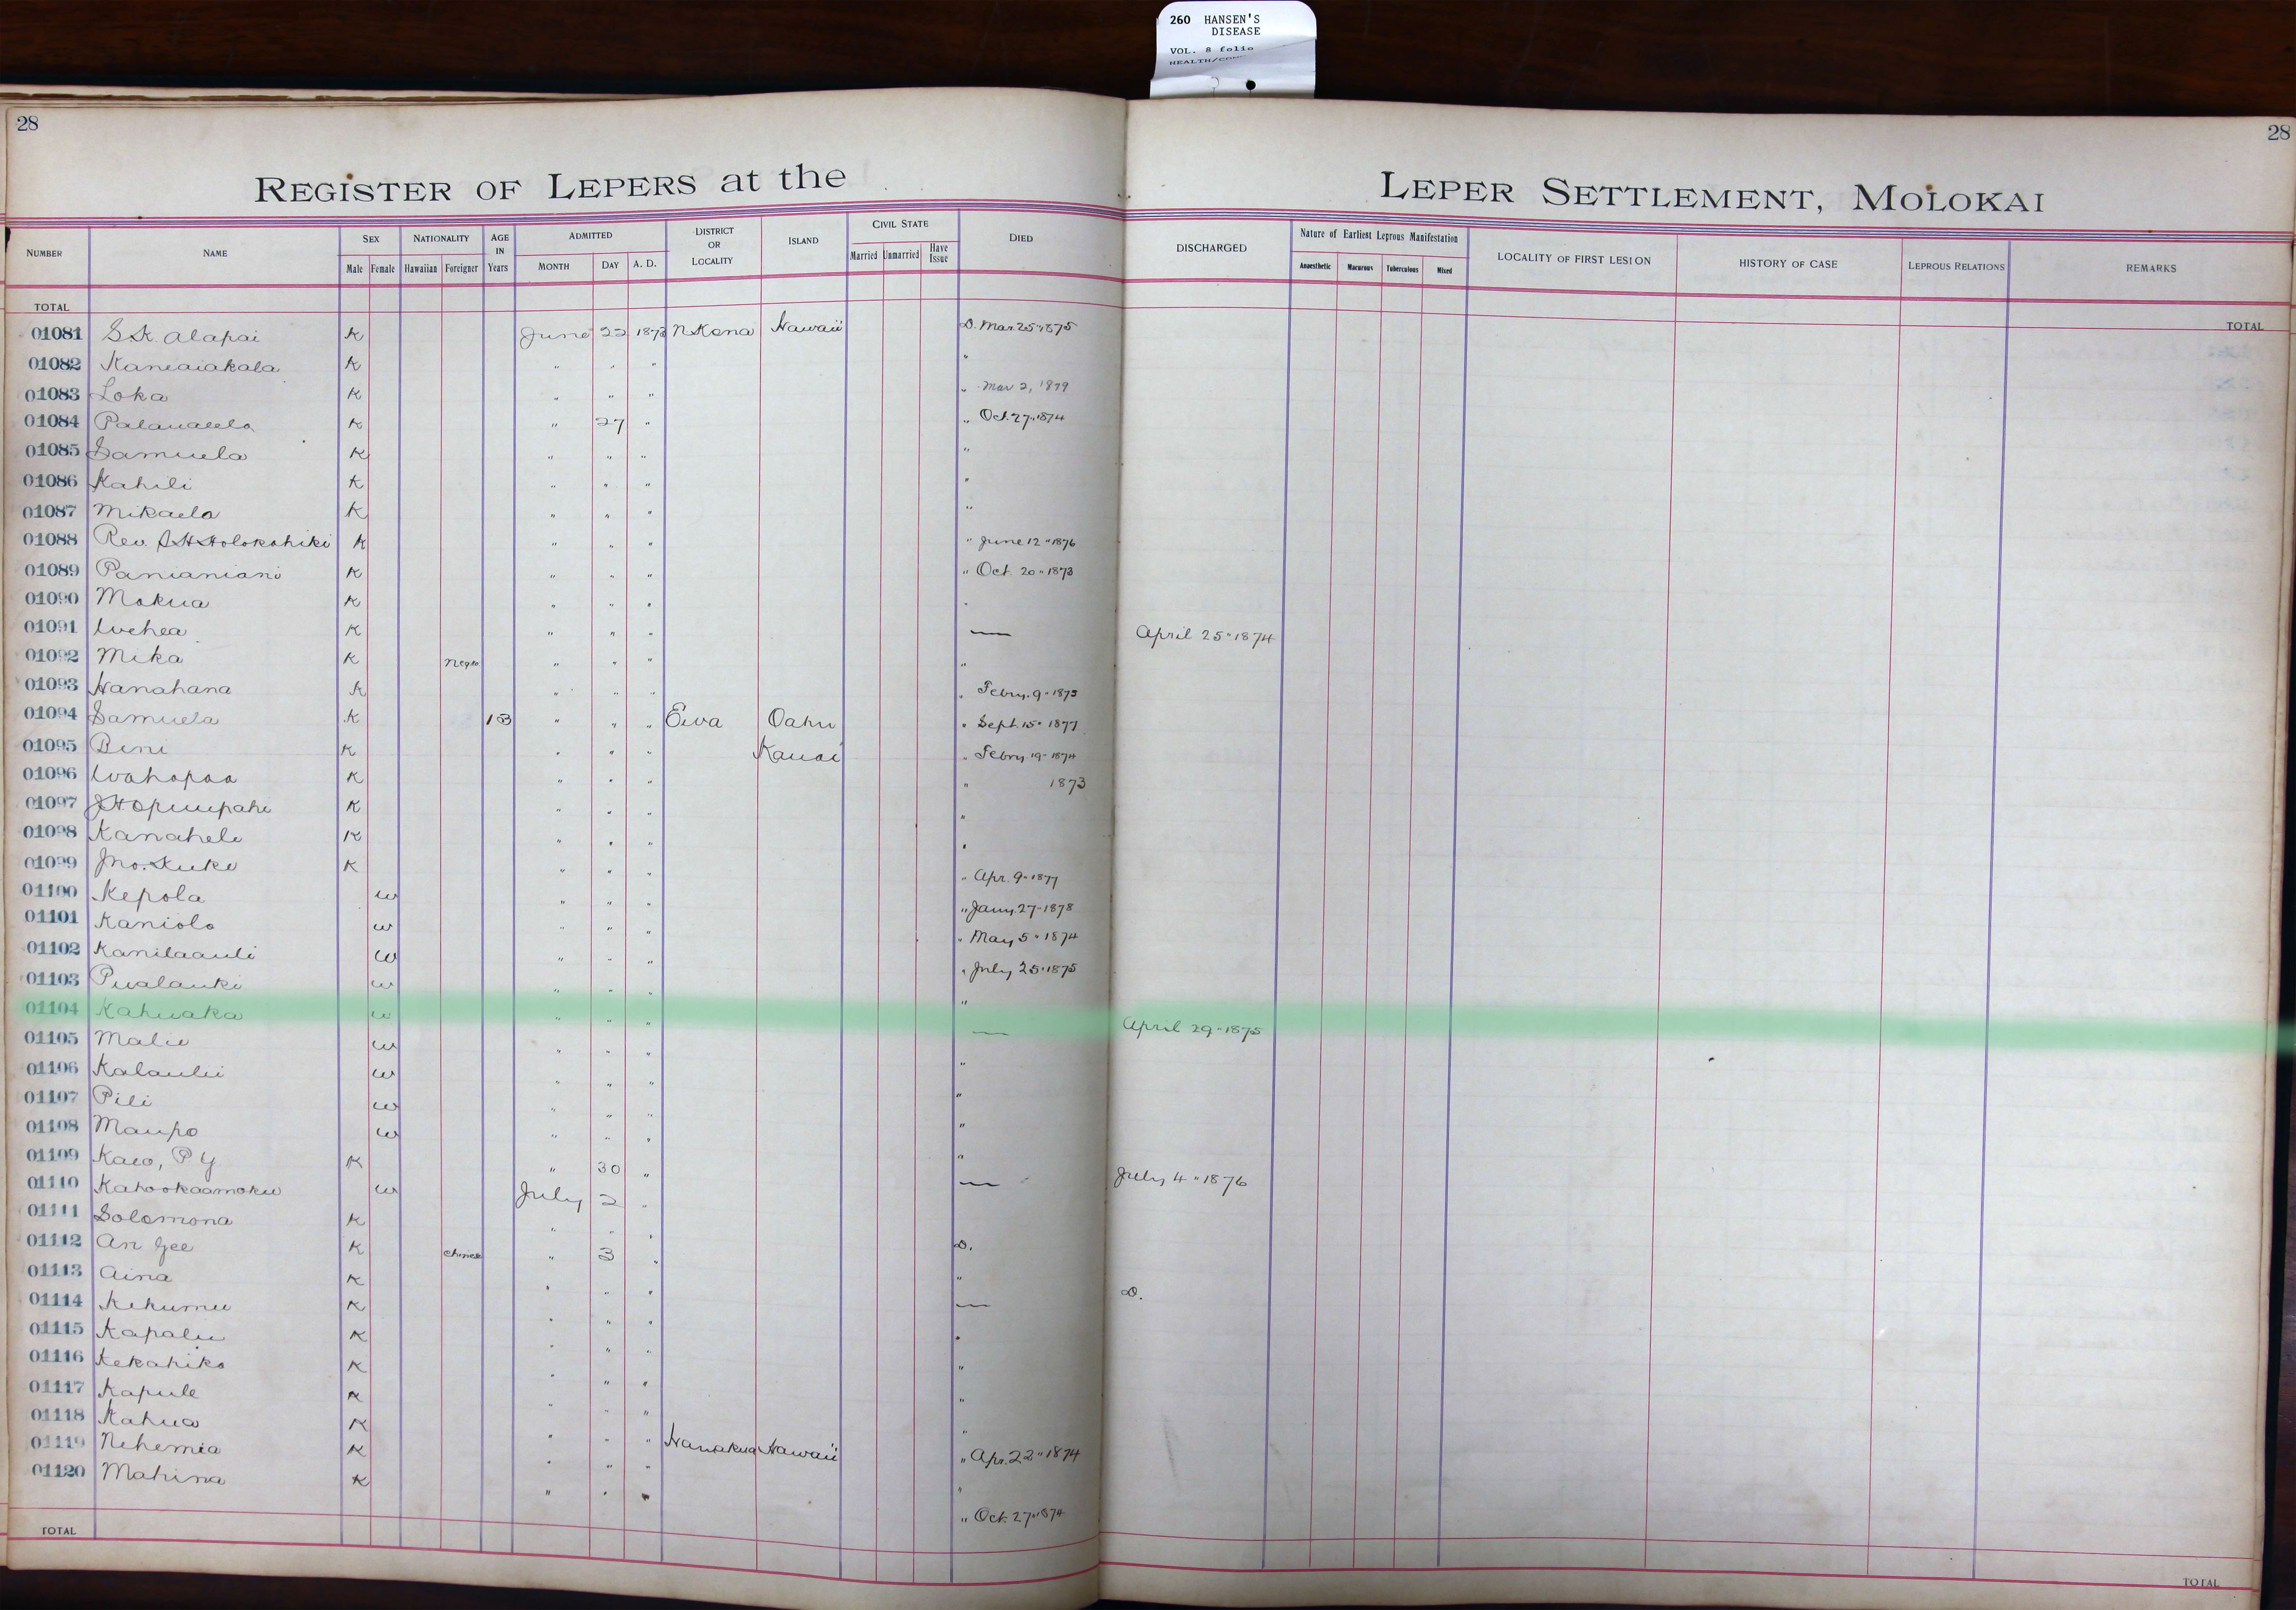 260 HANSEN'S
DISEASE
VOL. 8 folio
28
28
REGISTER OF LEPERS at the LEPER SETTLEMENT, MOLOKAI
NUMBER NAME SEX Male Female NATIONALITY Hawaiian Foreigner AGE IN Years ADMITTED MONTH DAY A. D. DISTRICT OR LOCALITY ISLAND CIVIL STATE Married Unmarried Have Issue DIED DISCHARGED Nature of Earliest Leprous Manifestation Anaesthetic Macurous Tuberculous Mixed LOCALITY OF FIRST LESION HISTORY OF CASE LEPROUS RELATIONS REMARKS
TOTAL TOTAL
01081 S.K. Alapai K June 22 1873 N Kona Hawaii D. Mar. 25 " 1875
01082 Kaneaiakala K " " " "
01083 Loka K " " " " Mar 2, 1879
01084 K " 27 " " Oct. 27 " 1874
01085 Samuela K " " " "
01086 Kahili K " " " "
01087 Mikaela K " " " "
01088 Rev. Holokahiki K " " " " June 12 " 1876
01089 Panianiani K " " " " Oct. 20 " 1873
01090 Mokua K " " " "
01091 Wehea K " " " — April 25 " 1874
01092 Mika K Negro " " " "
01093 Hanahana K " " " " Febry. 9 "
01094 Samuela K 13 " " " Ewa Oahu " Sept. 15 " 1877
01095 Beni K " " " Kauai " Febry 19 " 1874
01096 Wahapaa K " " " " 1873
01097 K " " " "
01098 Kanahele K " " " "
01099 Jno. Kuke K " " " " Apr. 9 " 1877
01100 Kepola w " " " " Jany. 27 " 1878
01101 Kaniolo w " " " " May 5 " 1874
01102 Kanilaauli w " " " " July 25 " 1875
01103 Pualauki w " " " "
01104 Kahuaka w " " " — April 29 " 1875
01105 Malie w " " " "
01106 Kalaulii w " " " "
01107 Pili w " " " "
01108 Maupo w " " " "
01109 Kaeo, P Y K " 30 " "
01110 Kahookaamoku w July 2 " — July 4 " 1876
01111 Solomona K " " "
01112 An Gee K Chinese " 3 " D.
01113 Aina K " " " "
01114 Kekumu K " " " — D.
01115 Kapalu K " " " "
01116 Kekahiko K " " " "
01117 Kapule K " " " "
01118 Kahua K " " " "
01119 Nehemia K " " " Hamakua Hawaii " Apr. 22 " 1874
01120 Mahina K " " " "
" Oct. 27 " 1874
TOTAL TOTAL